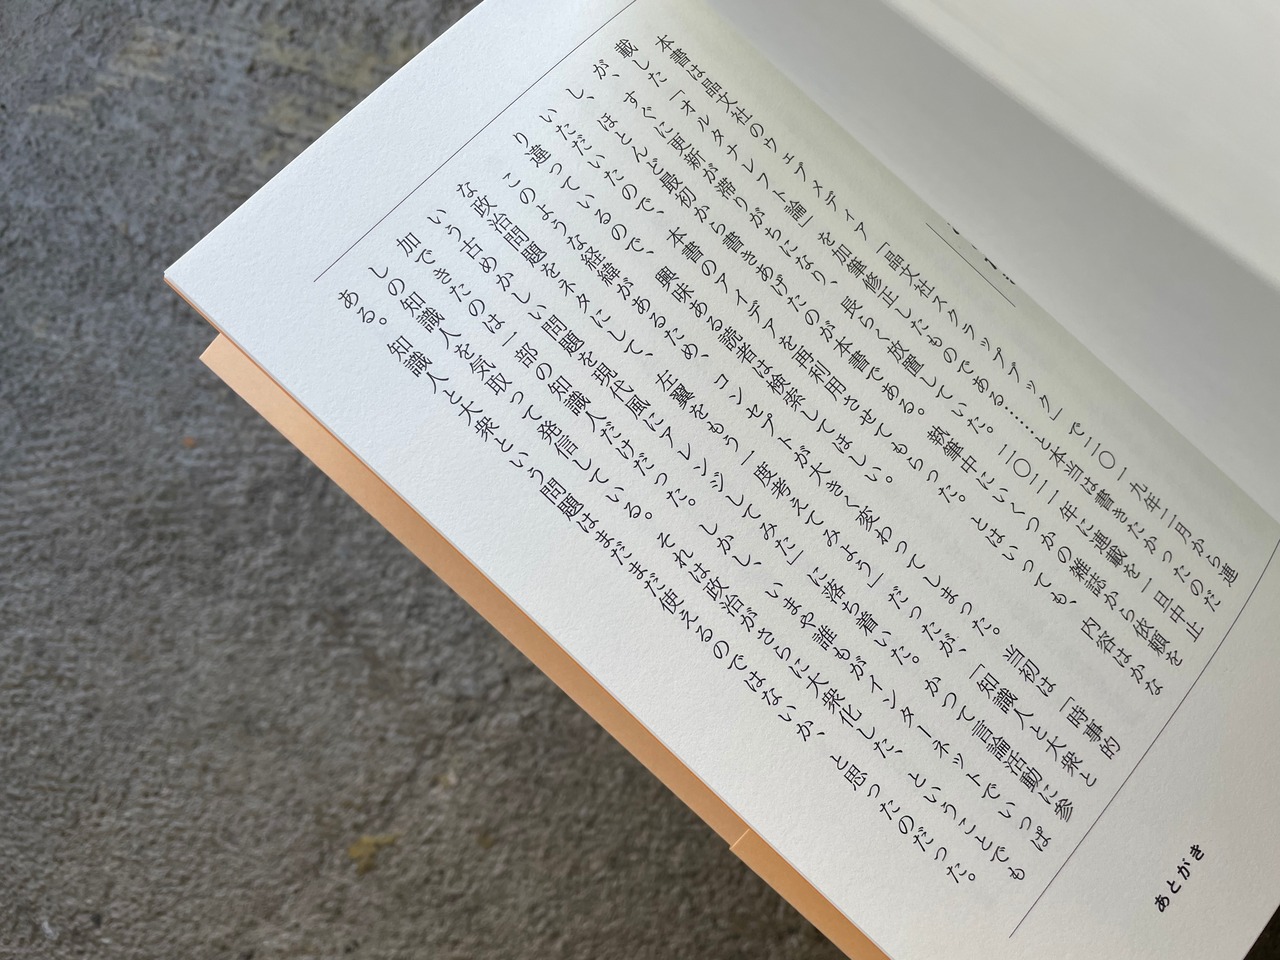 本書は晶文社のウェブメディア「晶文社スクラップブック」で二〇一九年二月から連
載した「オルタナレフト論」を加筆修正したものである……と本当は書きたかったのだ
が、すぐに更新が滞りがちになり、長らく放置していた。二〇二一年に連載を一旦中止
し、ほとんど最初から書きあげたのが本書である。執筆中にいくつかの雑誌から依頼を
いただいたので、本書のアイデアを再利用させてもらった。とはいっても、内容はかな
り違っているので、興味ある読者は検索してほしい。
このような経緯があるため、コンセプトが大きく変わってしまった。当初は「時事的
な政治問題をネタにして、左翼をもう一度考えてみよう」だったが、「知識人と大衆と
いう古めかしい問題を現代風にアレンジしてみた」に落ち着いた。かつて言論活動に参
加できたのは一部の知識人だけだった。しかし、いまや誰もがインターネットでいっぱ
しの知識人を気取って発信している。それは政治がさらに大衆化した、ということでも
ある。知識人と大衆という問題はまだまだ使えるのではないか、と思ったのだった。
あとがき